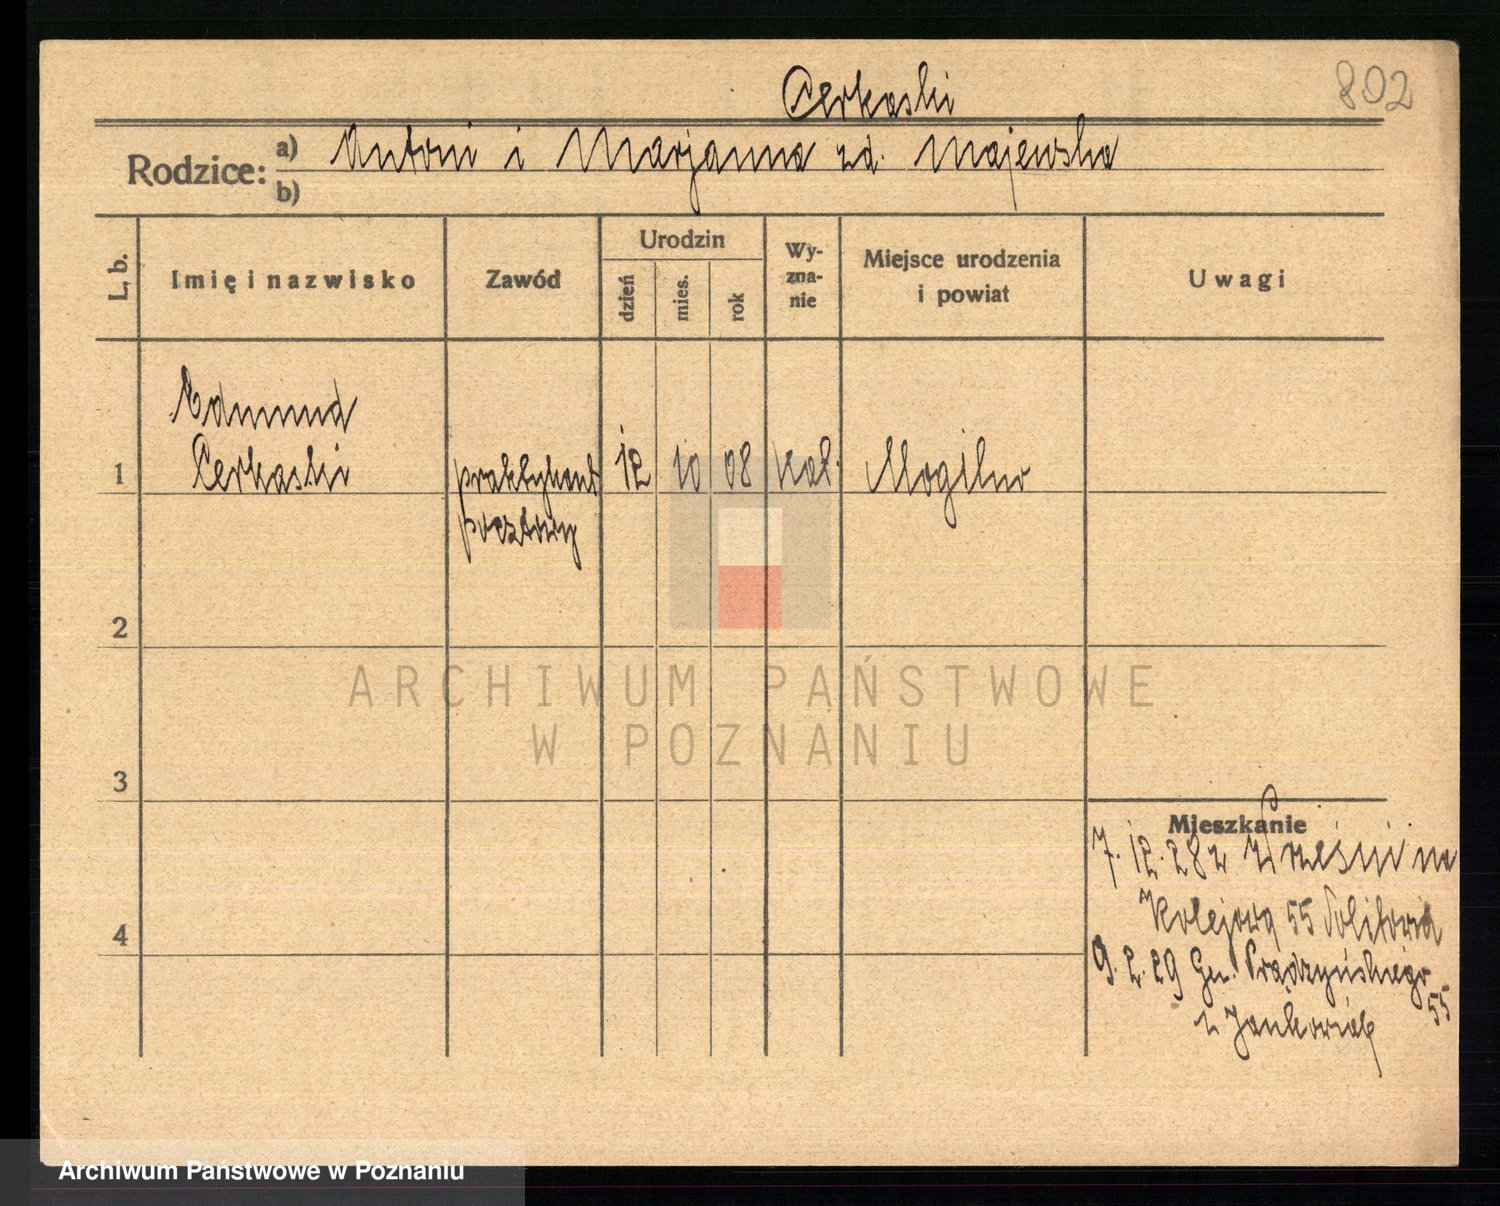 802
Cerkaski
Rodzice: a) Antoni i Marjanna zd. Majewska
b)
L. b.
Imię i nazwisko
Zawód
Urodzin
dzień
mies.
rok
Wy-
zna-
nie
Miejsce urodzenia
i powiat
Uwagi
Edmund
1 Cerkaski praktykant 12 10 08 kat. Mogilno
pocztowy
2
3
4
Mieszkanie
7.12.28 z Wrześni na
Kolejowa 55
9.2.29 Gen. Prądzyńskiego
55
ARCHIWUM PAŃSTWOWE
W POZNANIU
Archiwum Państwowe w Poznaniu